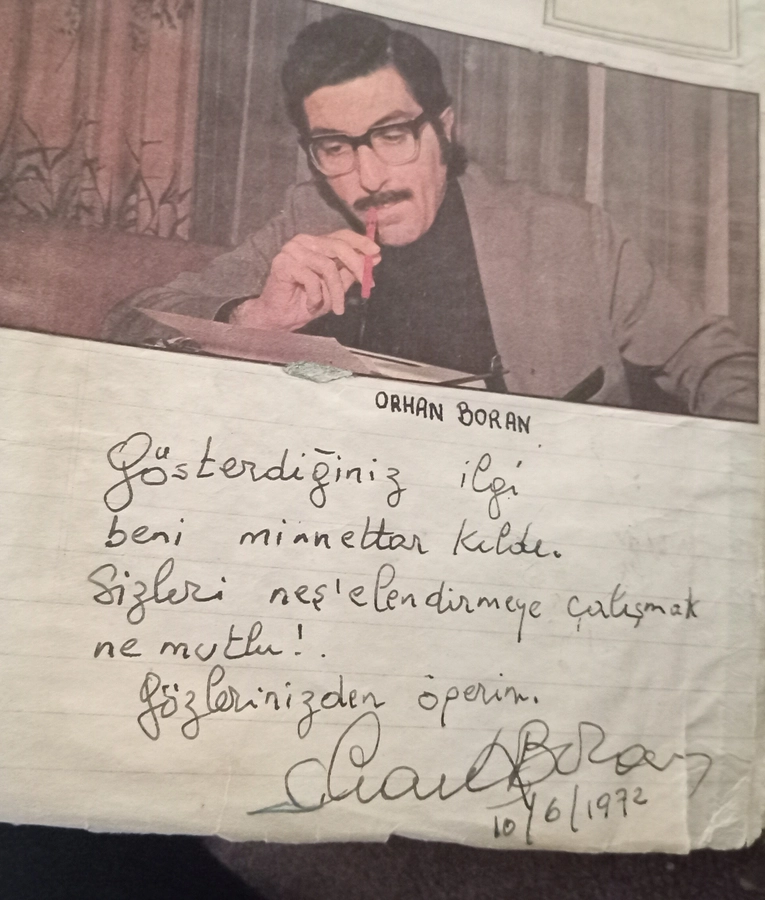 ORHAN BORAN
Gösterdiğiniz ilgi
beni minnettar kıldı.
Sizleri neş'elendirmeye çalışmak
ne mutlu!.
Gözlerinizden öperim.
Orhan Boran
10/6/1972